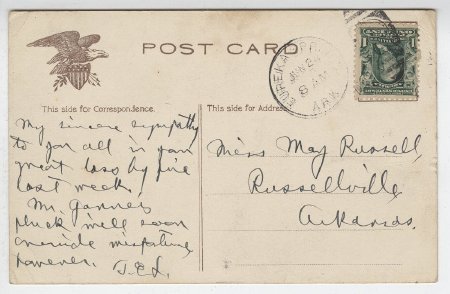 POST CARD
EUREKA SPR
JAN 2
8 AM
ARK.
1
This side for Correspondence.
This side for Address
My sincere sympathy
to you all in your
great loss by fire
last week.
Mr. 
pluck will soon
override misfortune
however.
Miss May Russell,
Russellville,
Arkansas.